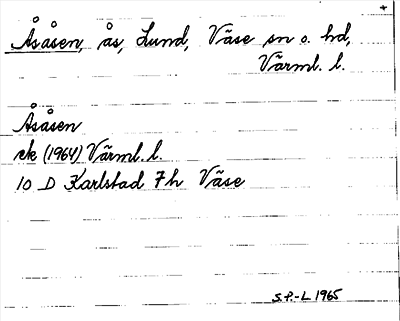 Åsåsen, ås, Lund, Väse sn o. hd,
Värml. l.
Åsåsen
ek (1964) Värml. l.
10 D Karlstad 7h Väse
S.P.-L 1965